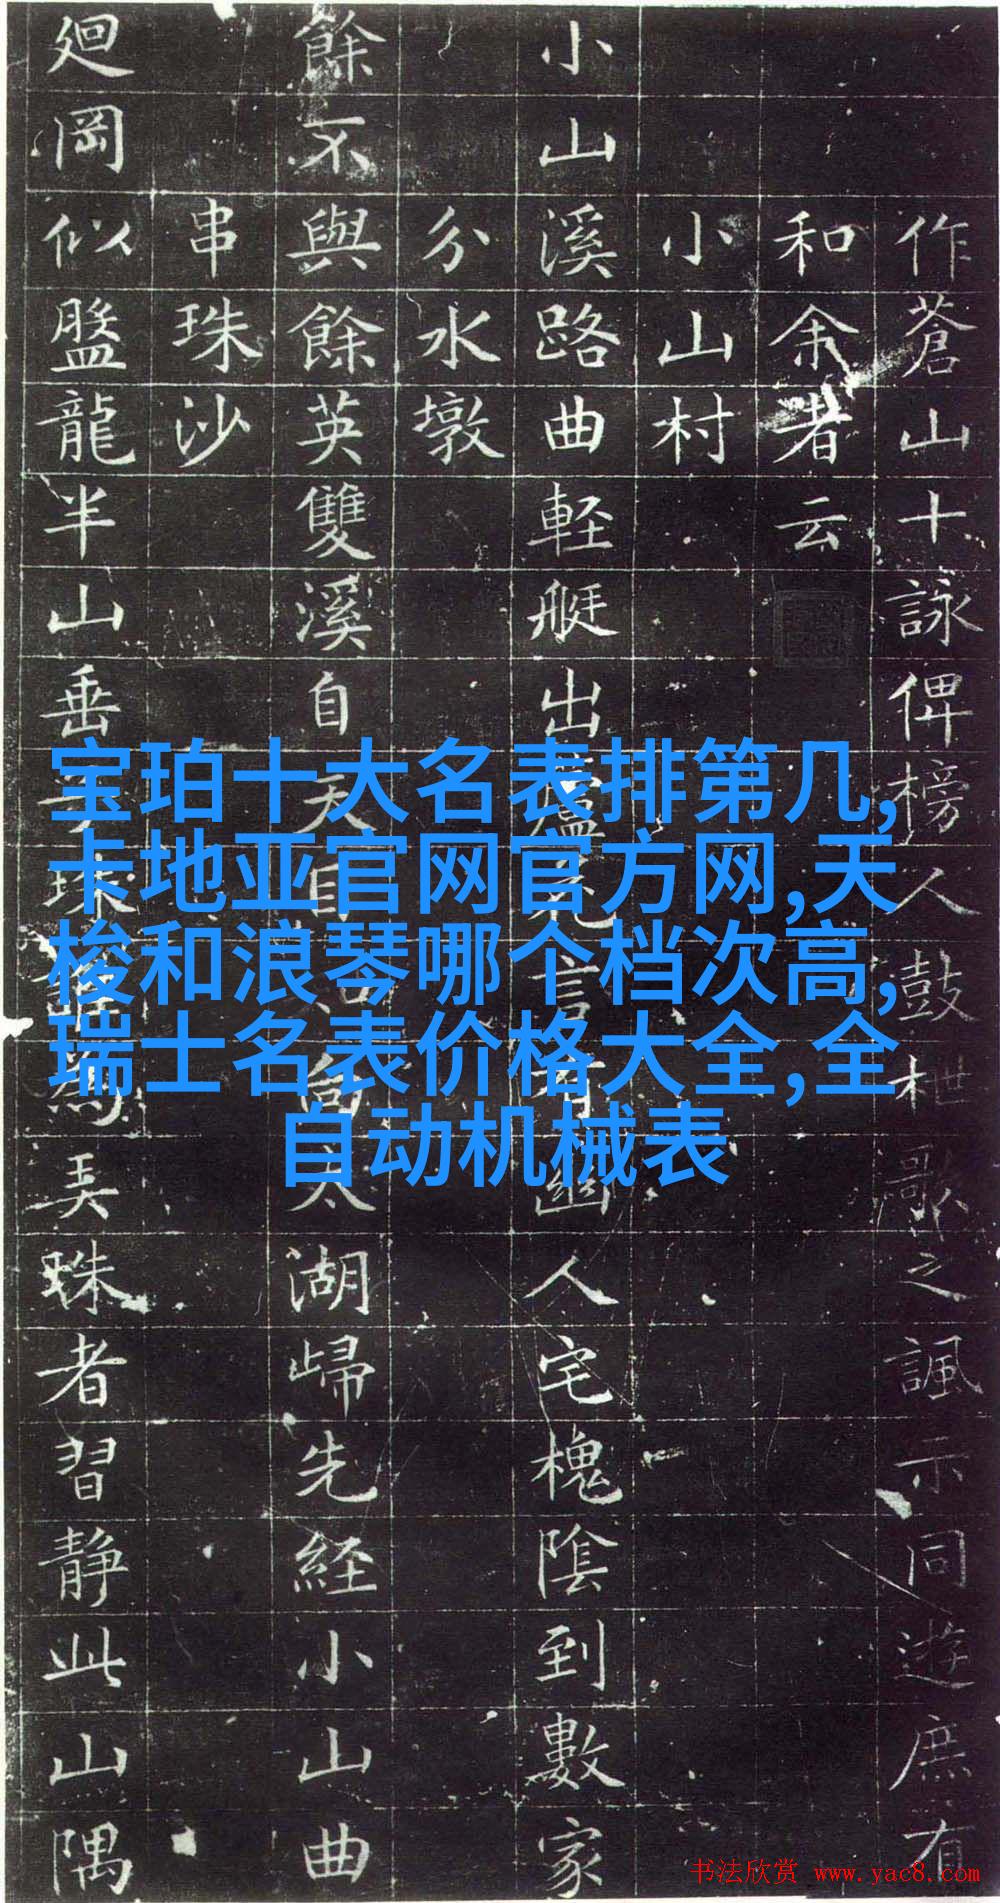 作蒼山十詠俾榜人鼓枻歌之諷示同遊庶有
和余者云
小山村
小山溪路曲軽艇出言有幽人宅槐陰到數家
分水墩
餘不與餘英雙溪自天太湖歸先経小山曲
串珠沙
廻岡似盤龍半山垂珠弄珠者習静此山隅
宝珀十大名表排第几,
卡地亚官网官方网,天
梭和浪琴哪个档次高,
瑞士名表价格大全,全
自动机械表
书法欣赏 www.yac8.com